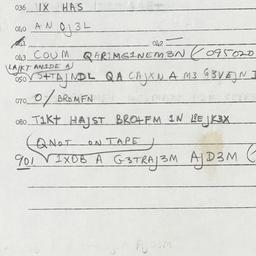 036 IX HAS
010 AN OJ3L
012 —
013 COUM QARIMG1NEM3N (095020
LAJKT AMIDE A
050 S+TAJNDL QA CAJKN A M3 G3VEJN I
070 O/ BROMFN
080 T1K+ HAJST BRO+FM 1N LEJK3X
(QNOT ON TAPE)
901 IXDB A G3TRAJ3M AJD3M (